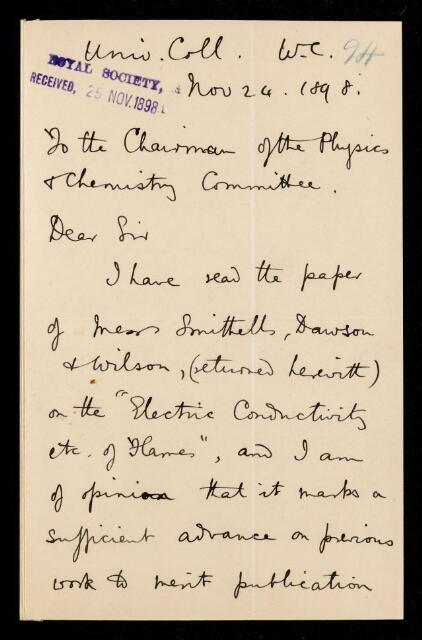 Univ. Coll. W.C. 94
ROYAL SOCIETY,
RECEIVED, 25 NOV. 1898
Nov 24. 1898.
To the Chairman of the Physics
& Chemistry Committee.
Dear Sir
I have read the paper
of Messrs Smithells, Dawson
& Wilson, (returned herewith)
on the "Electric Conductivity
etc. of Flames", and I am
of opinion that it marks a
sufficient advance on previous
work to merit publication